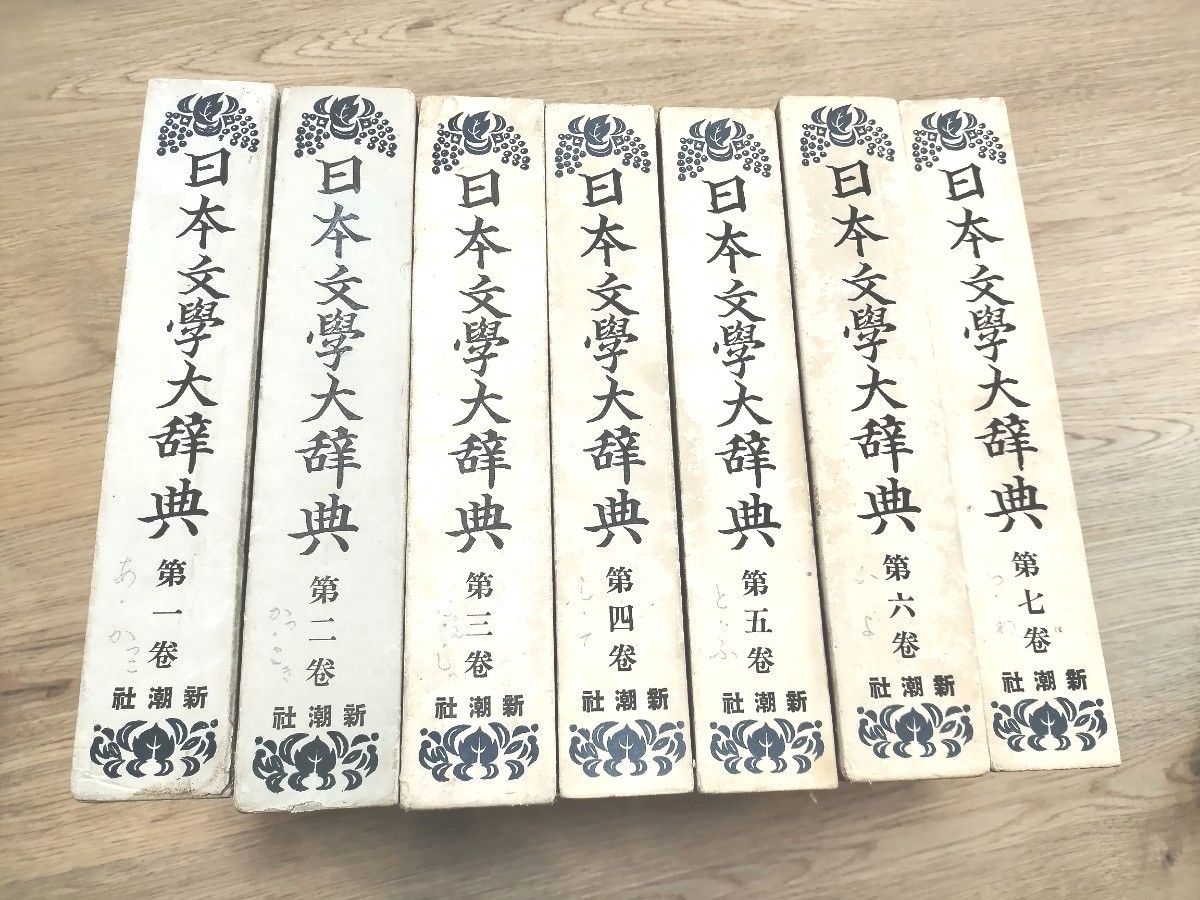 日本文學大辞典
第一卷
あ・かっこ
新潮社
日本文學大辞典
第二卷
かつ・こき
新潮社
日本文學大辞典
第三卷
新潮社
日本文學大辞典
第四卷
し・て
新潮社
日本文學大辞典
第五卷
と・ふ
新潮社
日本文學大辞典
第六卷
新潮社
日本文學大辞典
第七卷
新潮社